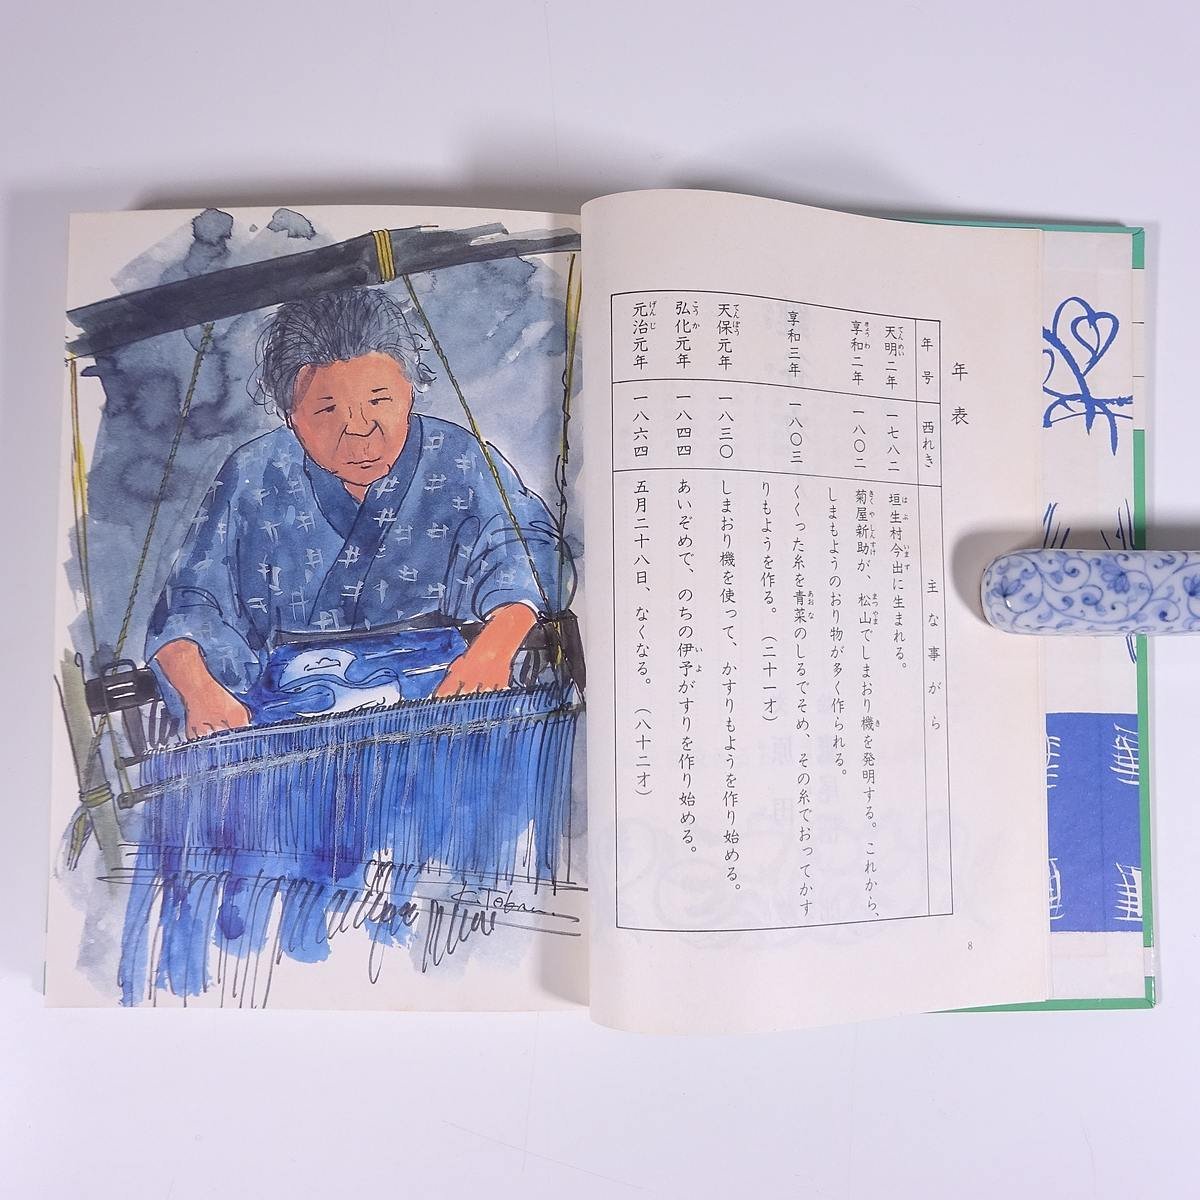 年表
年号 西れき 主な事がら
天明二年 一七八二 垣生村今出に生まれる。
享和二年 一八〇二 菊屋新助が、松山でしまおり機を発明する。これから、
しまもようのおり物が多く作られる。
享和三年 一八〇三 くくった糸を青菜のしるでそめ、その糸でおってかす
りもようを作る。(二十一才)
天保元年 一八三〇 しまおり機を使って、かすりもようを作り始める。
弘化元年 一八四四 あいぞめで、のちの伊予がすりを作り始める。
元治元年 一八六四 五月二十八日、なくなる。(八十二才)
8